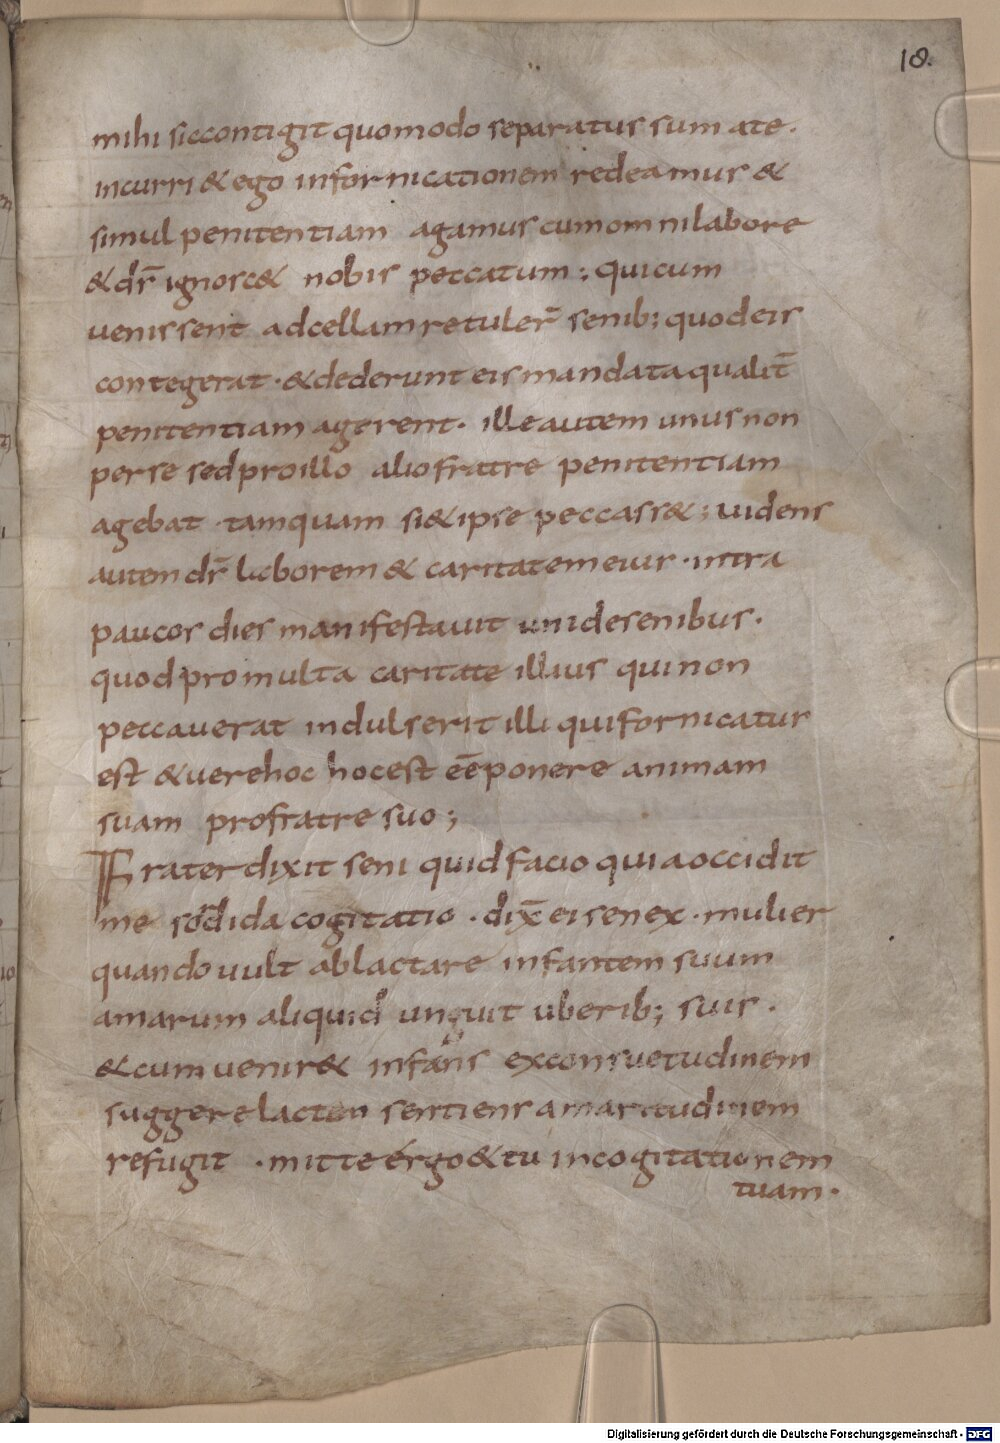 18.
mihi siccontigit quomodo separatus sum ate.
incurri & ego infornicationem redeamus &
simul penitentiam agamus cumomnilabore
& dr̄ ignosc& nobis peccatum; quicum
venissent adcellam retuler̄ senib; quodeis
contegerat · & dederunt eis mandata qualit̄
penitentiam agerent. ille autem unus non
per se sed proillo alio fratre penitentiam
agebat tamquam si & ipse peccass&; uidens
autem dr̄ laborem & caritatem eius · intra
paucos dies manifestauit uni desenibus.
quod promulta caritate illius qui non
peccauerat indulserit illi qui fornicatur
est & uerehoc hocest eē ponere animam
suam profratre suo;
Frater dixit seni quid facio quia occidit
me sordida cogitatio · dix̄ ei senex · mulier
quando uult ablactare infantem suum
amarum aliquid unguit uberib; suis .
& cum uenir& infans exconsuetudinem
suggere lactem sentiens amaritudinem
refugit · mitte ergo & tu incogitationem
tuam.
Digitalisierung gefördert durch die Deutsche Forschungsgemeinschaft - DFG